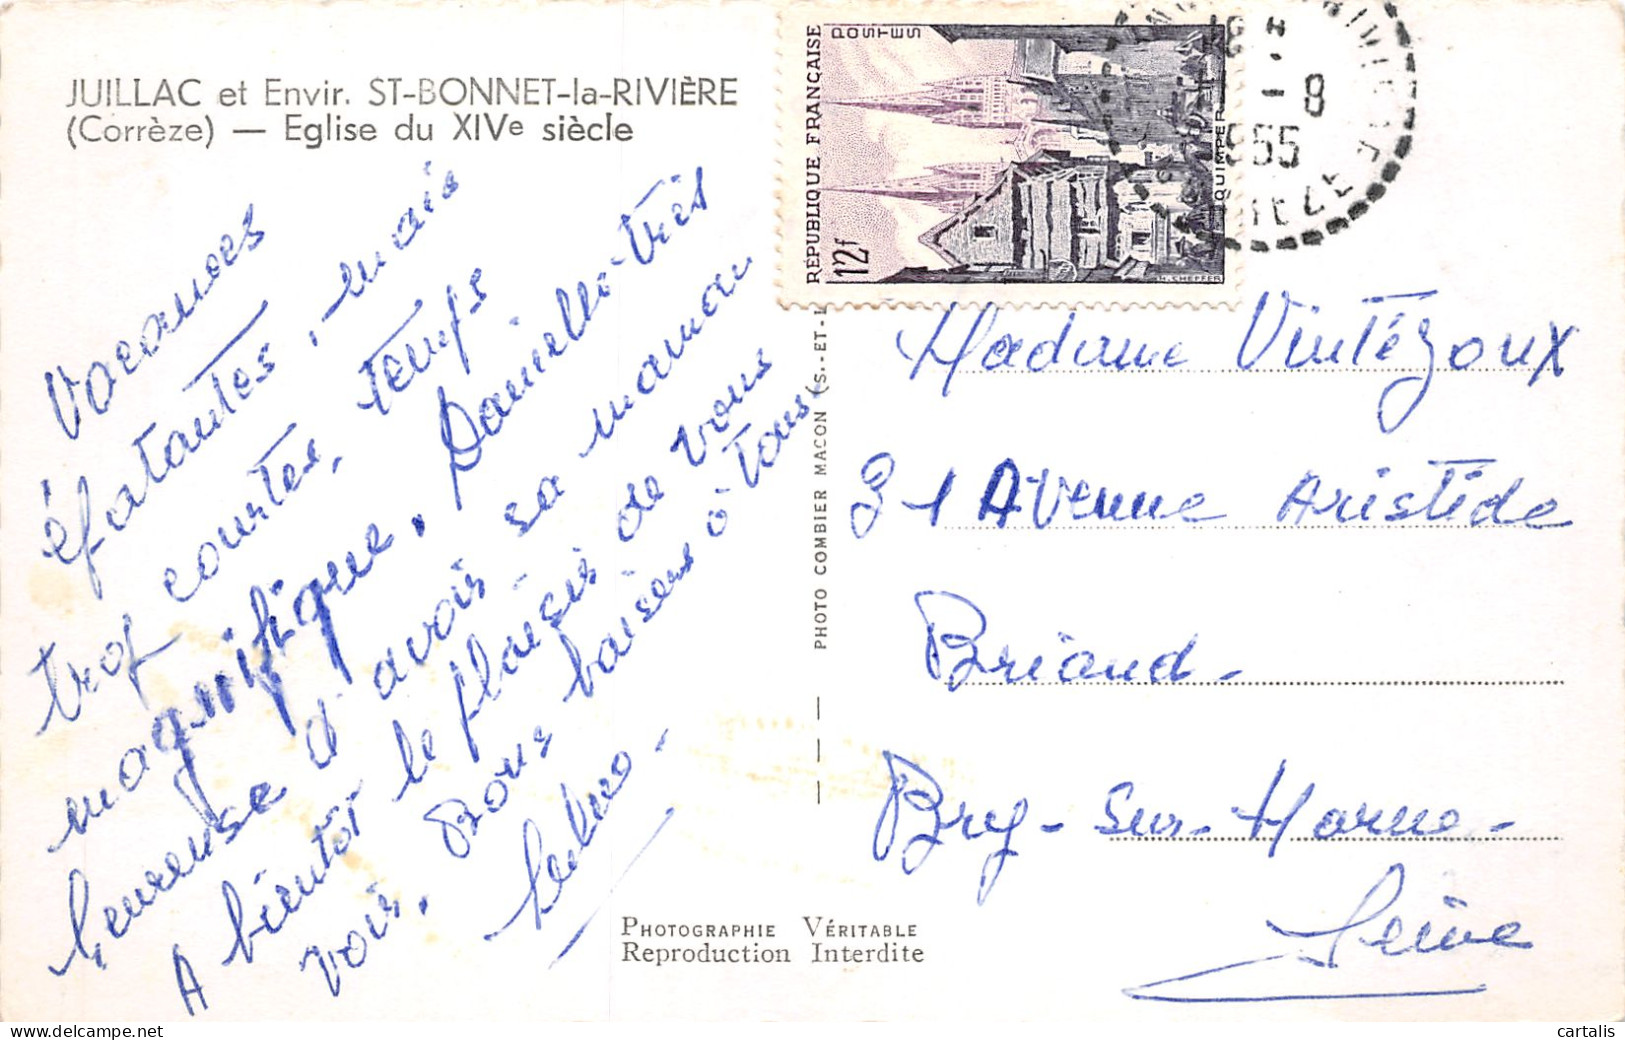 JUILLAC et Envir. ST-BONNET-la-RIVIÈRE
(Corrèze) — Eglise du XIVe siècle
Vacances
éfatantes, mais
trop courtes, temps
magnifique, Danielle très
heureuse d'avoir sa maman
A bientôt le plaisir de vous
voir. Bons baisers à tous.
PHOTO COMBIER MACON (S.-ET-L
PHOTOGRAPHIE VÉRITABLE
Reproduction Interdite
RÉPUBLIQUE FRANÇAISE
POSTES
12f
QUIMPER
H. CHEFFER
-8
955
Madame Vintézoux
21 Avenue Aristide
Briand-
Bry-sur-Marne-
Seine